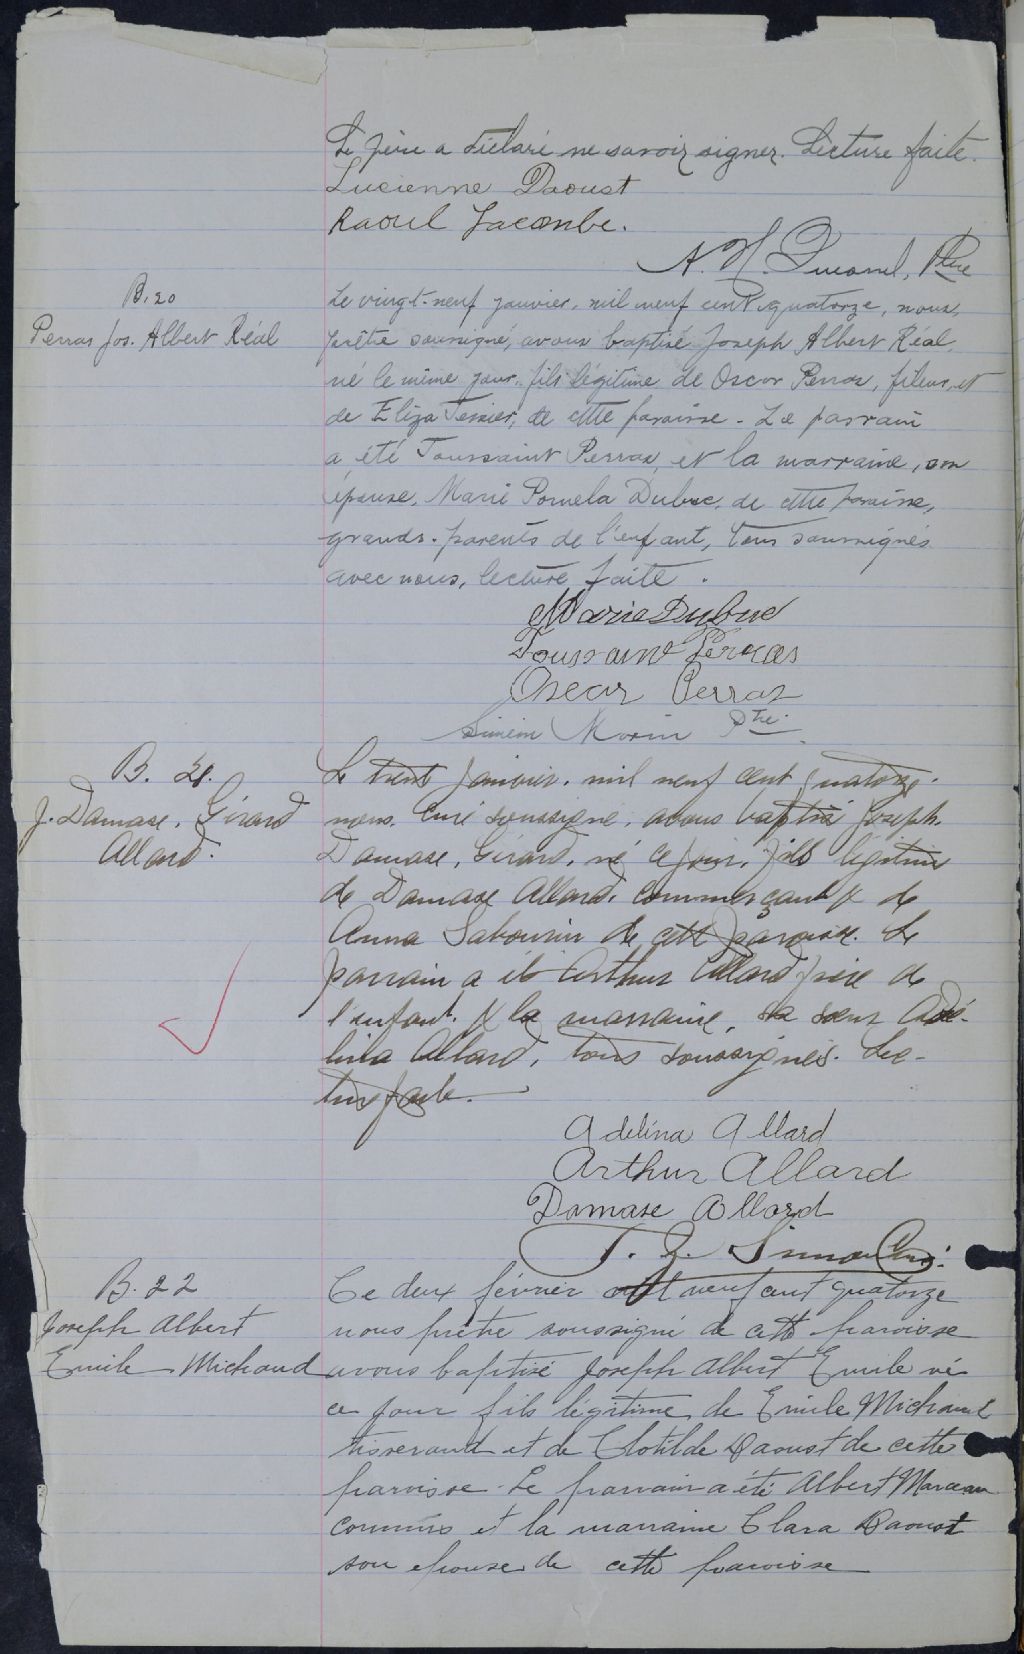 Le père a déclaré ne savoir signer. Lecture faite.
Lucienne Daoust
Raoul Lacombe.
A. H. Ptre
B. 20
Perras Jos. Albert Réal
Le vingt-neuf janvier, mil neuf cent quatorze, nous,
prêtre soussigné, avons baptisé Joseph Albert Réal,
né le même jour, fils légitime de Oscar Perras, fileur, et
de Eliza Tessier, de cette paroisse - Le parrain
a été Toussaint Perras, et la marraine, son
épouse, Marie Pomela Dubuc, de cette paroisse,
grands-parents de l'enfant, tous soussignés
avec nous, lecture faite.
Marie Dubuc
Toussaint Perras
Oscar Perras
Siméon Morin Ptre.
B. 21.
J. Damase, Gérard
Allard.
Le trente janvier, mil neuf cent quatorze,
nous, curé soussigné, avons baptisé Joseph,
Damase, Gérard, né ce jour, fils légitime
de Damase Allard, commerçant & de
Anna Sabourin de cette paroisse. Le
parrain a été Arthur Allard frère de
l'enfant & la marraine, sa sœur Adé-
lina Allard, tous soussignés. Lec-
ture faite.
Adelina Allard
Arthur Allard
Damase Allard
Curé.
B. 22
Joseph Albert
Emile Michaud
Ce deux février mil neuf cent quatorze
nous prêtre soussigné de cette paroisse
avons baptisé Joseph Albert Emile né
ce jour fils légitime de Emile Michaud
tisserand et de Clotilde Daoust de cette
paroisse. Le parrain a été Albert Marceau
commis et la marraine Clara Daoust
son epouse de cette paroisse